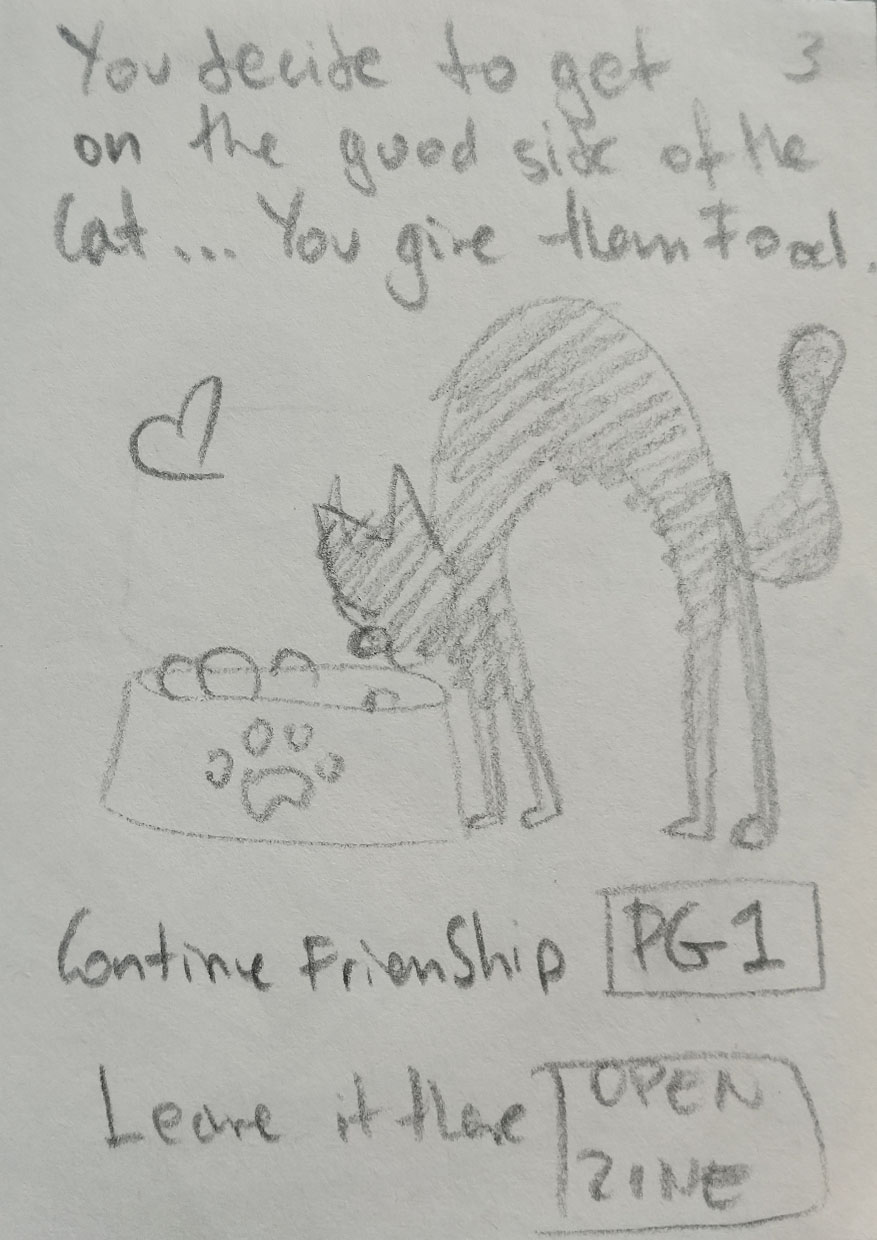 You decide to get 3
on the good side of the
Cat... You give them Food.
Continue FrienShip PG1
Leave it there OPEN
ZINE